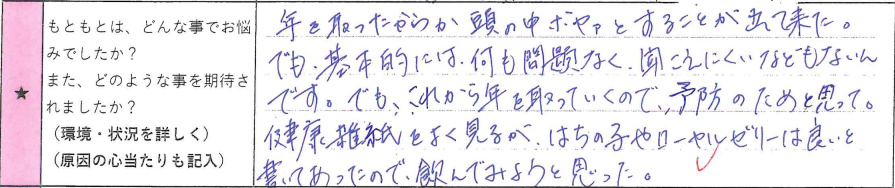 ★
もともとは、どんな事でお悩
みでしたか？
また、どのような事を期待さ
れましたか？
（環境・状況を詳しく）
（原因の心当たりも記入）
年を取ったからか頭の中ボヤァとすることが出て来た。
でも、基本的には、何も問題なく、聞こえにくいなどもないん
です。でも、これから年を取っていくので、予防のためと思って。
健康雑紙をよく見るが、はちの子やローヤルゼリーは良いと
書いてあったので、飲んでみようと思った。